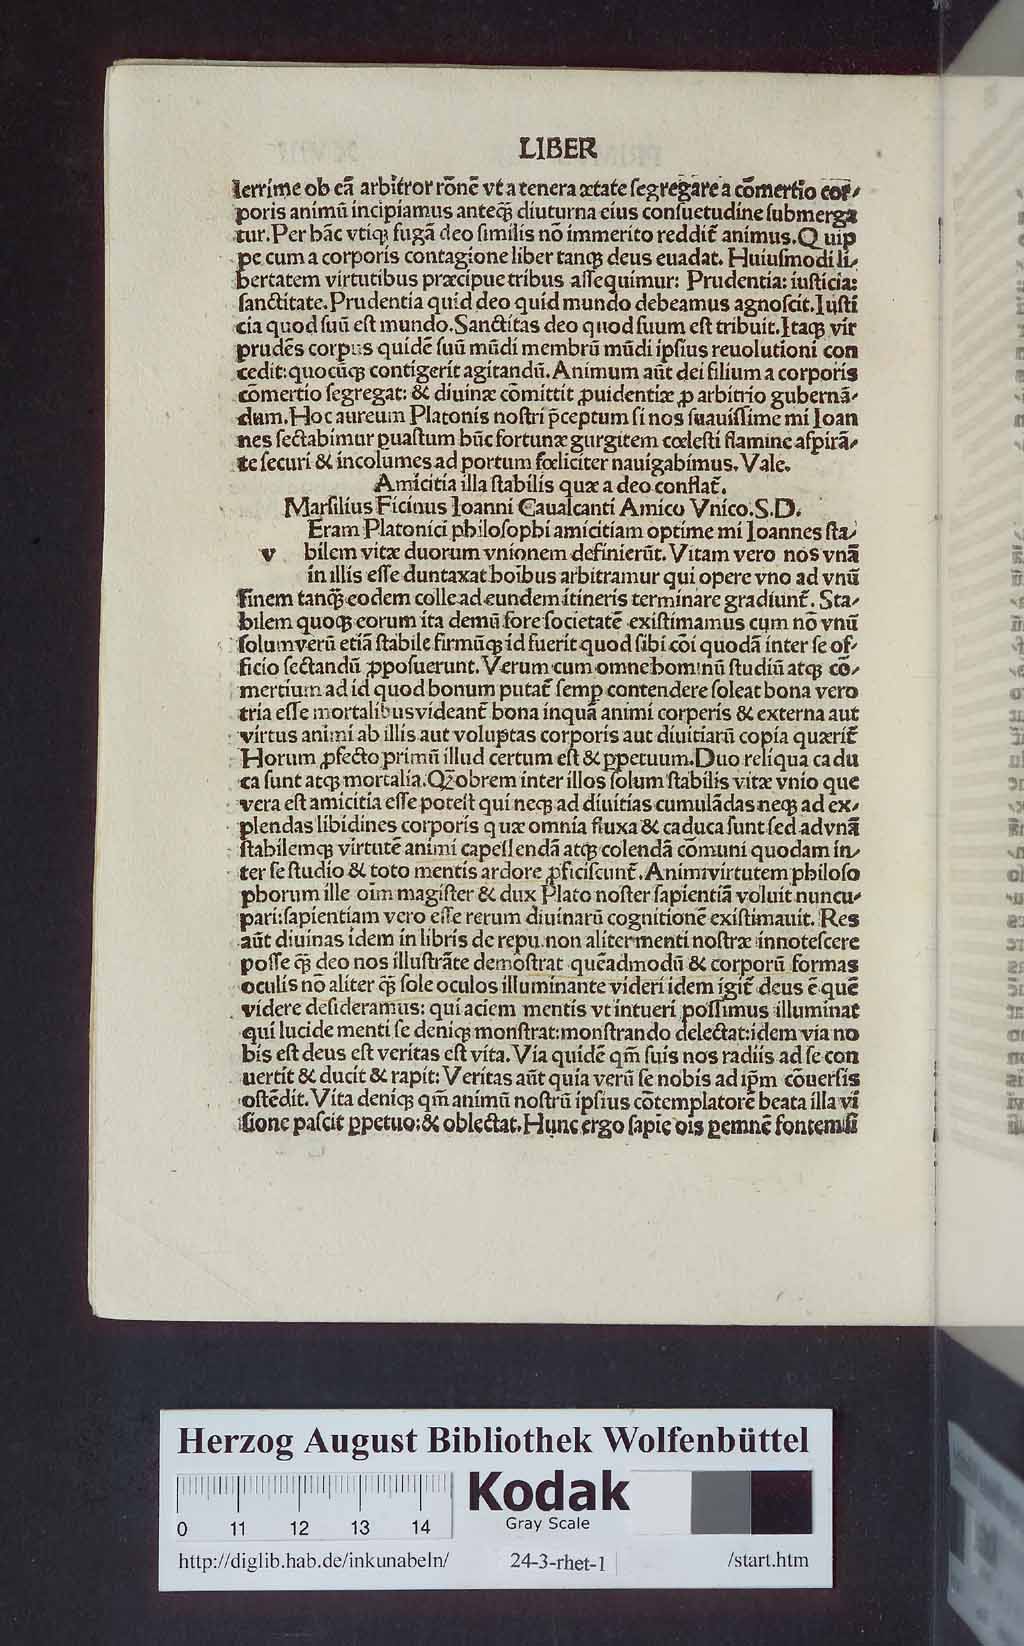 LIBER
lerrime ob eã arbitror rõnẽ vt a tenera ætate ſegregare a cõmertio cor⸗
poris animũ incipiamus anteq̃ diuturna eius conſuetudine ſubmerga
tur. Per hãc vtiqꝫ fugã deo ſimilis nõ immerito reddit̃ animus. Quip
pe cum a corporis contagione liber tanqꝫ deus euadat. Huiuſmodi li⸗
bertatem virtutibus præcipue tribus aſſequimur: Prudentia: iuſticia:
ſanctitate. Prudentia quid deo quid mundo debeamus agnoſcit. Iuſti
cia quod ſuũ eſt mundo. Sanctitas deo quod ſuum eſt tribuit. Itaqꝫ vir
prudẽs corpus quidẽ ſuũ mũdi membrũ mũdi ipſius reuolutioni con
cedit: quocũqꝫ contigerit agitandũ. Animum aũt dei filium a corporis
cõmertio ſegregat: & diuinæ cõmittit ꝓuidentiæ ꝓ arbitrio gubernã⸗
dum. Hoc aureum Platonis noſtri p̃ceptum ſi nos ſuauiſſime mi Ioan
nes ſectabimur puaſtum hũc fortunæ gurgitem cœleſti flamine aſpirã⸗
te ſecuri & incolumes ad portum fœliciter nauigabimus. Vale.
Amicitia illa ſtabilis quæ a deo conflat̃.
Marſilius Ficinus Ioanni Caualcanti Amico Vnico. S. D.
Eram Platonici philoſophi amicitiam optime mi Ioannes ſta⸗
v bilem vitæ duorum vnionem definierũt. Vitam vero nos vnã
in illis eſſe duntaxat hoibus arbitramur qui opere vno ad vnũ
finem tanq̃ eodem colle ad eundem itineris terminare gradiunt̃. Sta⸗
bilem quoqꝫ eorum ita demũ fore ſocietatẽ exiſtimamus cum nõ vnũ
ſolum verũ etiã ſtabile firmũqꝫ id fuerit quod ſibi cõi quodã inter ſe of⸗
ficio ſectandũ ꝓpoſuerunt. Verum cum omne hominũ ſtudiũ atqꝫ cõ⸗
mertium ad id quod bonum putat̃ ſemꝑ contendere ſoleat bona vero
tria eſſe mortalibus videant̃ bona inquã animi corperis & externa aut
virtus animi ab illis aut voluptas corporis aut diuitiarũ copia quærit̃
Horum ꝓfecto primũ illud certum eſt & ꝑpetuum. Duo reliqua cadu
ca ſunt atqꝫ mortalia. Qꝫobrem inter illos ſolum ſtabilis vitæ vnio que
vera eſt amicitia eſſe poteſt qui neqꝫ ad diuitias cumulãdas neqꝫ ad ex⸗
plendas libidines corporis quæ omnia fluxa & caduca ſunt ſed ad vnã
ſtabilemqꝫ virtutẽ animi capeſſendã atqꝫ colendã cõmuni quodam in⸗
ter ſe ſtudio & toto mentis ardore ꝓficiſcunt̃. Animi virtutem philoſo
phorum ille oim magiſter & dux Plato noſter ſapientiã voluit nuncu⸗
pari: ſapientiam vero eſſe rerum diuinarũ cognitionẽ exiſtimauit. Res
aũt diuinas idem in libris de repu. non aliter menti noſtræ innoteſcere
poſſe q̃ deo nos illuſtrãte demõſtrat quẽadmodũ & corporũ formas
oculis nõ aliter q̃ ſole oculos illuminante videri idem igit̃ deus ẽ quẽ
videre deſideramus: qui aciem mentis vt intueri poſſimus illuminat
qui lucide menti ſe deniqꝫ monſtrat: monſtrando delectat: idem via no
bis eſt deus eſt veritas eſt vita. Via quidẽ qm̃ ſuis nos radiis ad ſe con
uertit & ducit & rapit: Veritas aũt quia verũ ſe nobis ad ip̃m cõuerſis
oſtẽdit. Vita deniqꝫ qm̃ animũ noſtrũ ipſius cõtemplatorẽ beata illa vi
ſione paſcit ꝑpetuo: & oblectat. Hunc ergo ſapiẽ ois ꝑemnẽ fontem ſi
Herzog August Bibliothek Wolfenbüttel
Kodak
Gray Scale
0 11 12 13 14
http://diglib.hab.de/inkunabeln/ 24-3-rhet-1 /start.htm